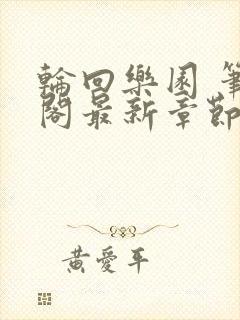 輪回樂園 筆
閣最新章節
黃愛平